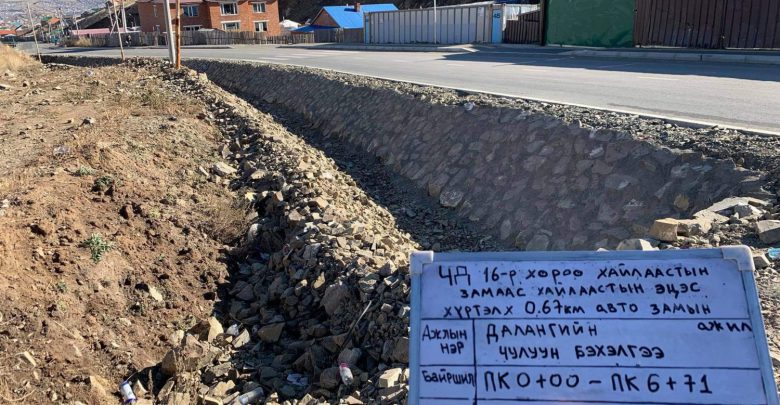 45
ЧД 16-р хороо хайлаастын
замаас хайлаастын эцэс
хүртэлх 0.67км авто замын
Ажлын нэр
Далангийн ажил
чулуун бэхэлгээ
Байршил ПК0+00 - ПК6+71